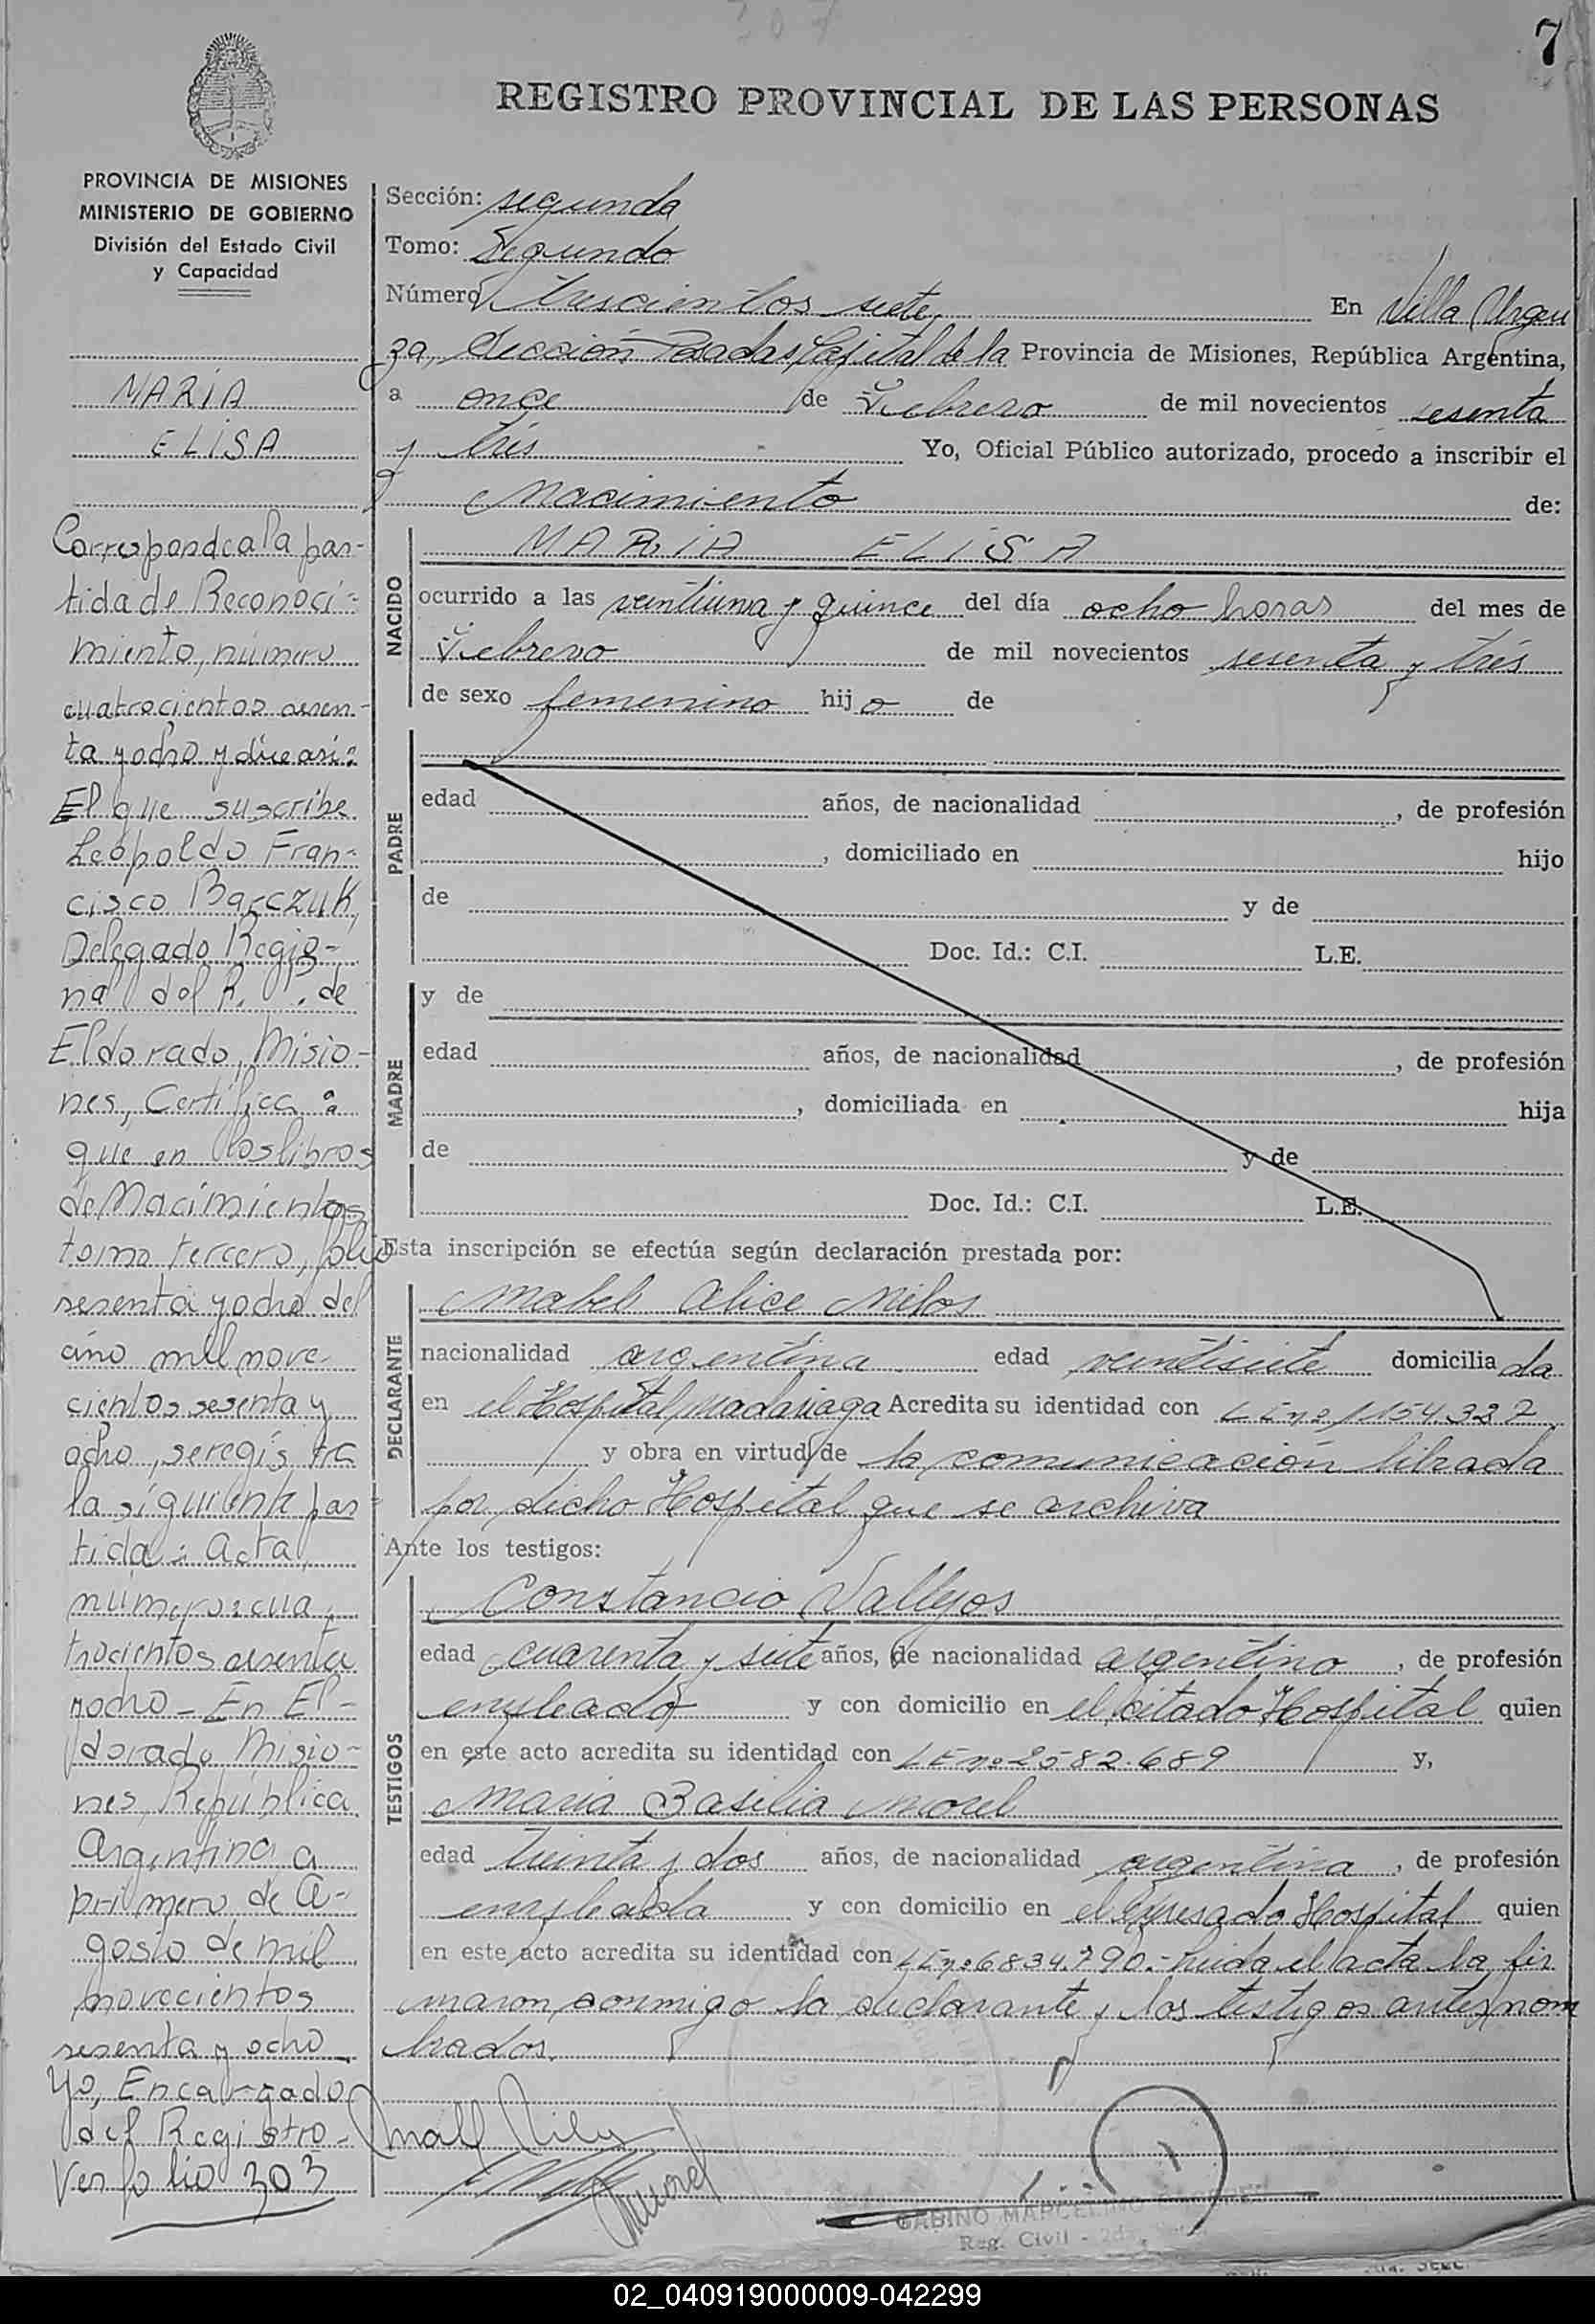 7
REGISTRO PROVINCIAL DE LAS PERSONAS
PROVINCIA DE MISIONES
MINISTERIO DE GOBIERNO
División del Estado Civil
y Capacidad
MARIA
ELISA
Corresponde a la par-
tida de Reconoci-
miento, número
cuatrocientos sesen-
ta y ocho y dice asi:
El que suscribe
Leopoldo Fran-
cisco Barczuk,
Delegado Regio-
nal del R. P. de
Eldorado, Misio-
nes, Certifica:
que en los libros
de Nacimientos
tomo tercero, folio
sesenta y ocho del
año mil nove-
cientos sesenta y
ocho, se regis tra
la siguiente par
tida: Acta
número: cua
trocientos sesenta
y ocho - En El-
dorado Misio-
nes, República
Argentina, a
primero de A-
gosto de mil
novecientos
sesenta y ocho
Yo, Encargado
del Registro-
Ver folio 303
Sección: segunda
Tomo: Segundo
Número trescientos siete, En Villa Urqui
za, Sección Posadas, Capital de la Provincia de Misiones, República Argentina,
a once de Febrero de mil novecientos sesenta
y trés Yo, Oficial Público autorizado, procedo a inscribir el
Nacimiento de:
NACIDO
MARIA ELISA
ocurrido a las veintiuna y quince del día ocho horas del mes de
Febrero de mil novecientos sesenta y trés
de sexo femenino hij a de
PADRE
edad años, de nacionalidad , de profesión
, domiciliado en hijo
de y de
Doc. Id.: C.I. L.E.
MADRE
y de
edad años, de nacionalidad , de profesión
, domiciliada en hija
de y de
Doc. Id.: C.I. L.E.
Esta inscripción se efectúa según declaración prestada por:
DECLARANTE
Mabel Alice
nacionalidad argentina edad veintisiete domicilia da
en el Hospital Madariaga Acredita su identidad con LE nº 1154.327
y obra en virtud de la comunicación librada
por dicho Hospital que se archiva
Ante los testigos:
TESTIGOS
Constancio Vallejos
edad cuarenta y siete años, de nacionalidad argentino , de profesión
empleado y con domicilio en el citado Hospital quien
en este acto acredita su identidad con LE nº 2582.689 y,
Maria Basilia Morel
edad treinta y dos años, de nacionalidad argentina , de profesión
empleada y con domicilio en el expresado Hospital quien
en este acto acredita su identidad con LE nº 6834.790.- Leida el acta la fir
maron conmigo la declarante y los testigos antes nom
brados.
Morel
GABINO MARCELINO
Reg. Civil - 2da.
02_040919000009-042299